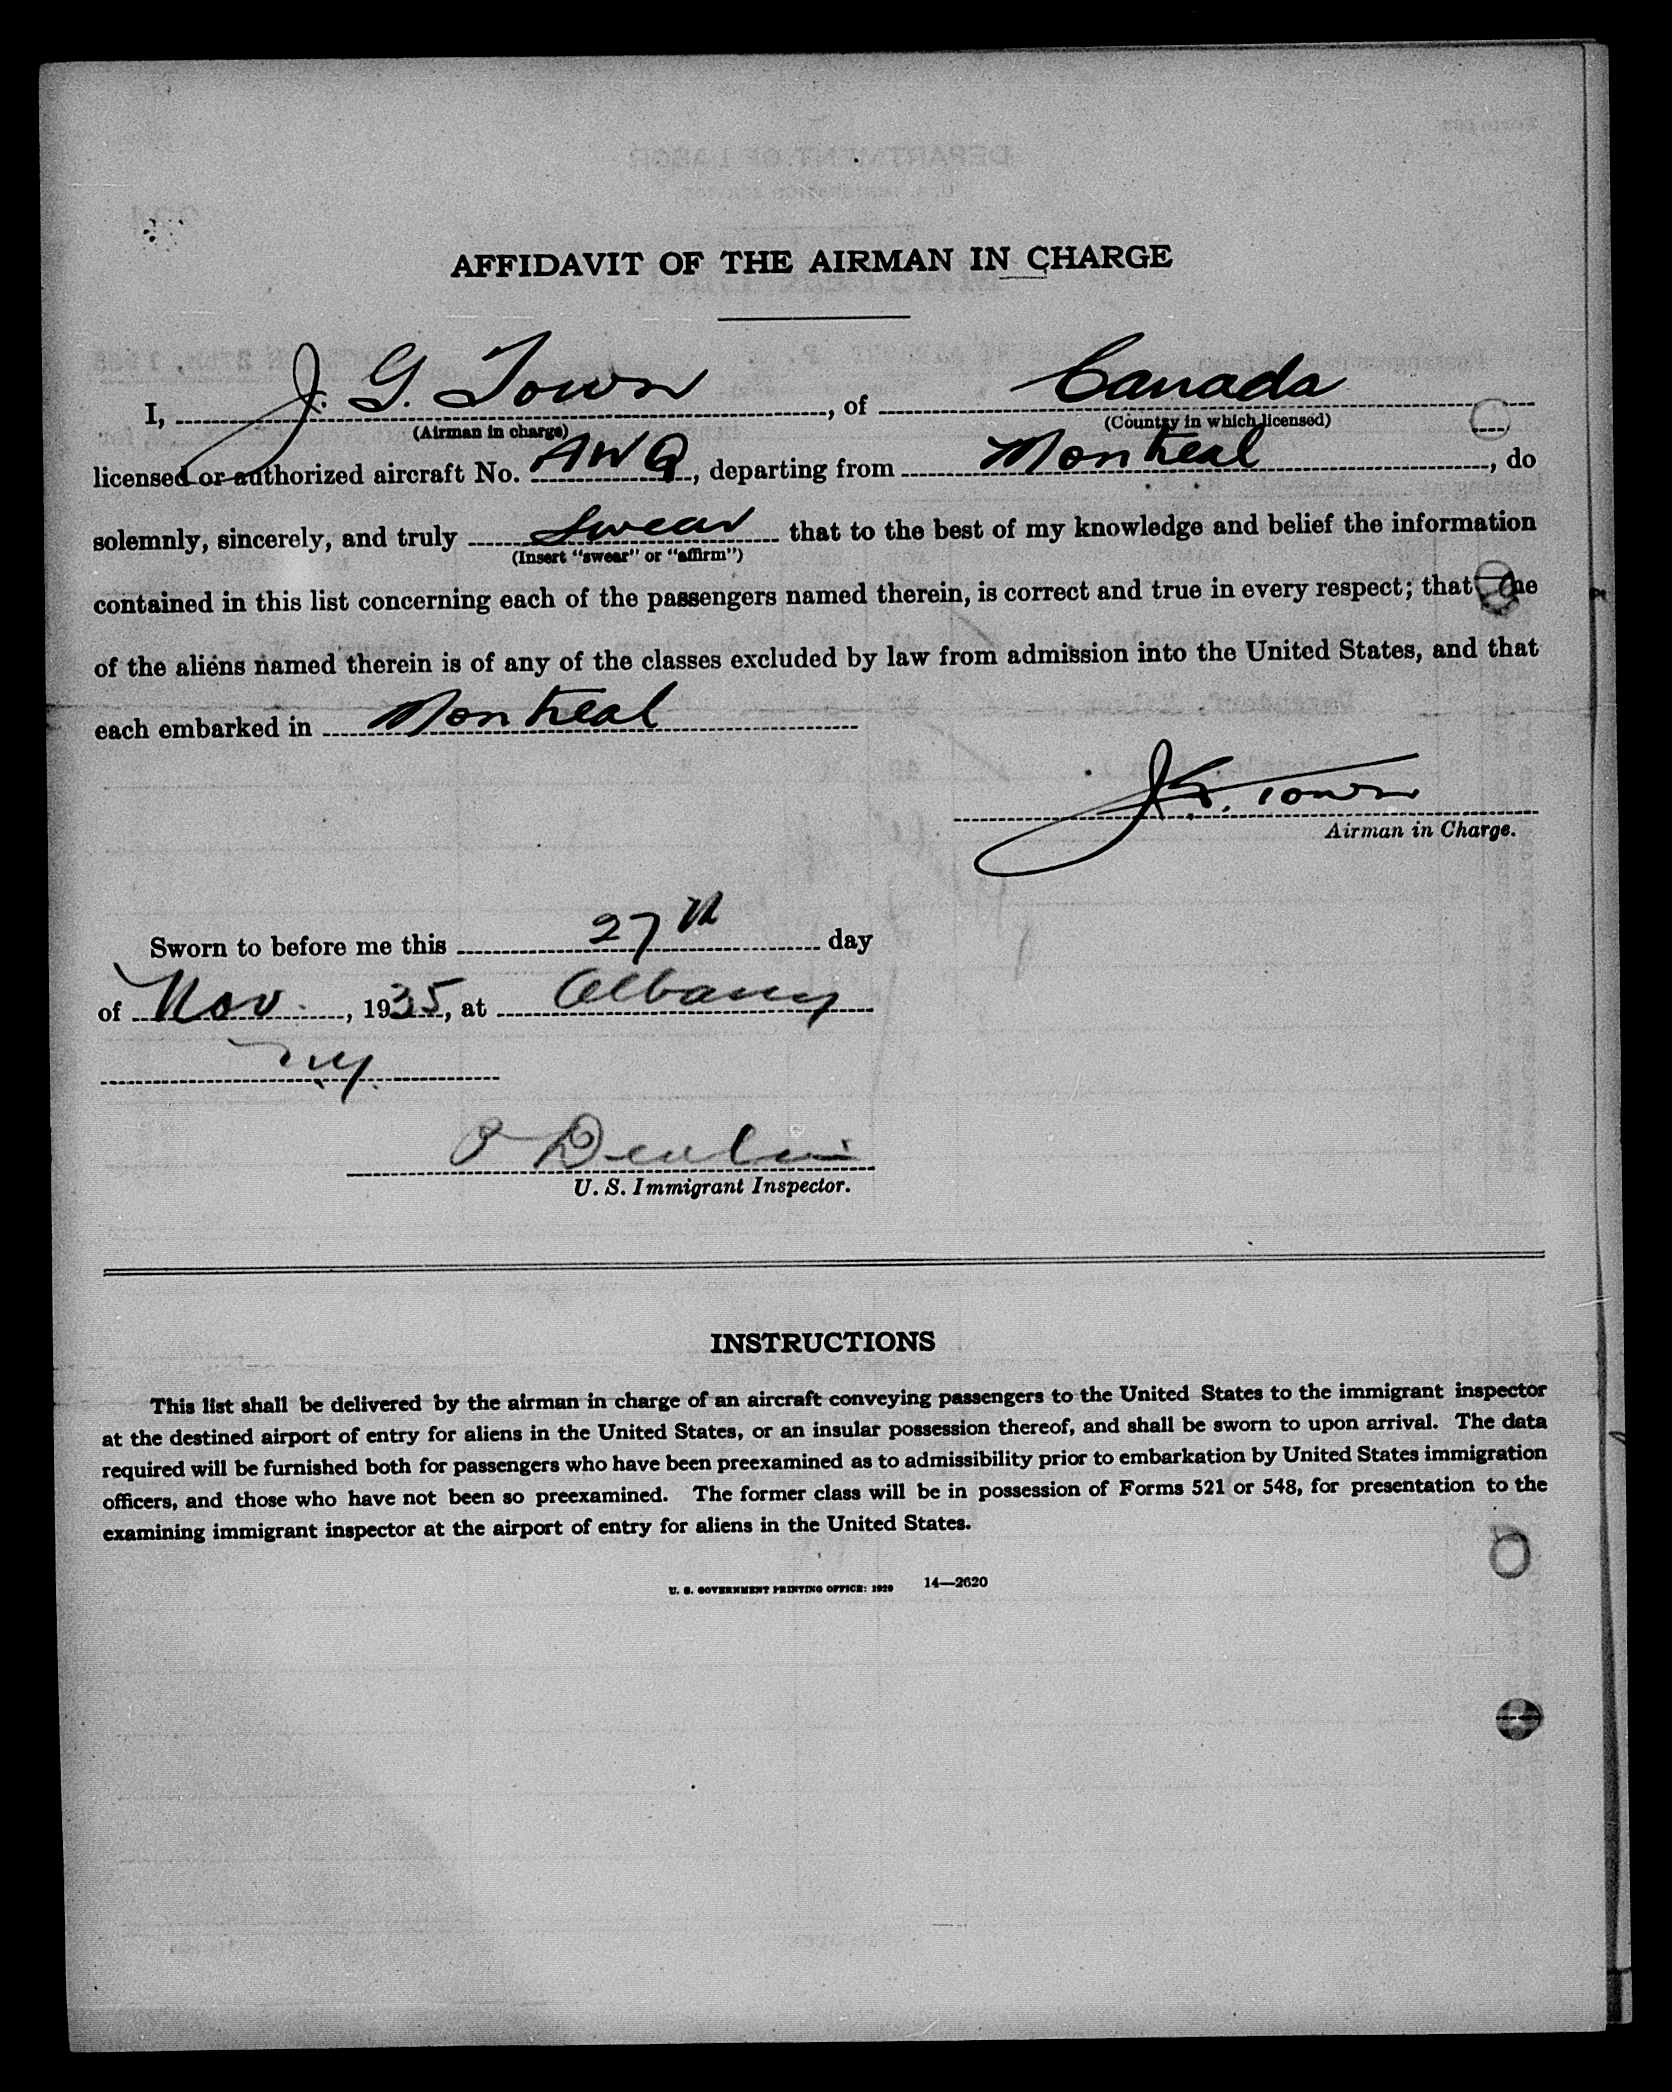 AFFIDAVIT OF THE AIRMAN IN CHARGE
I, J. G. Town, of Canada
(Airman in charge) (Country in which licensed)
licensed or authorized aircraft No. AWQ, departing from Montreal, do
solemnly, sincerely, and truly swear that to the best of my knowledge and belief the information
(Insert "swear" or "affirm")
contained in this list concerning each of the passengers named therein, is correct and true in every respect; that
of the aliens named therein is of any of the classes excluded by law from admission into the United States, and that
each embarked in Montreal
J. G. Town
Airman in Charge.
Sworn to before me this 27th day
of Nov., 1935, at Albany
N.Y.
U. S. Immigrant Inspector.
INSTRUCTIONS
This list shall be delivered by the airman in charge of an aircraft conveying passengers to the United States to the immigrant inspector
at the destined airport of entry for aliens in the United States, or an insular possession thereof, and shall be sworn to upon arrival. The data
required will be furnished both for passengers who have been preexamined as to admissibility prior to embarkation by United States immigration
officers, and those who have not been so preexamined. The former class will be in possession of Forms 521 or 548, for presentation to the
examining immigrant inspector at the airport of entry for aliens in the United States.
U. S. GOVERNMENT PRINTING OFFICE: 1929 14—2620